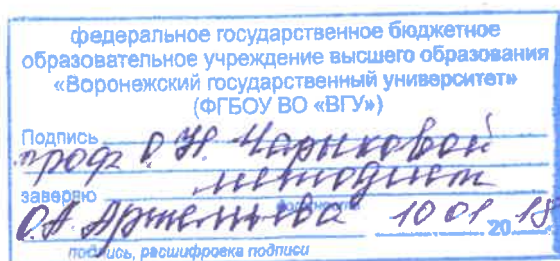 федеральное государственное бюджетное
образовательное учреждение высшего образования
«Воронежский государственный университет»
(ФГБОУ ВО «ВГУ»)
Подпись
проф О.Н. Чарыковой
заверяю методист
О.А. Артемьева 10 01 20 18
подпись, расшифровка подписи